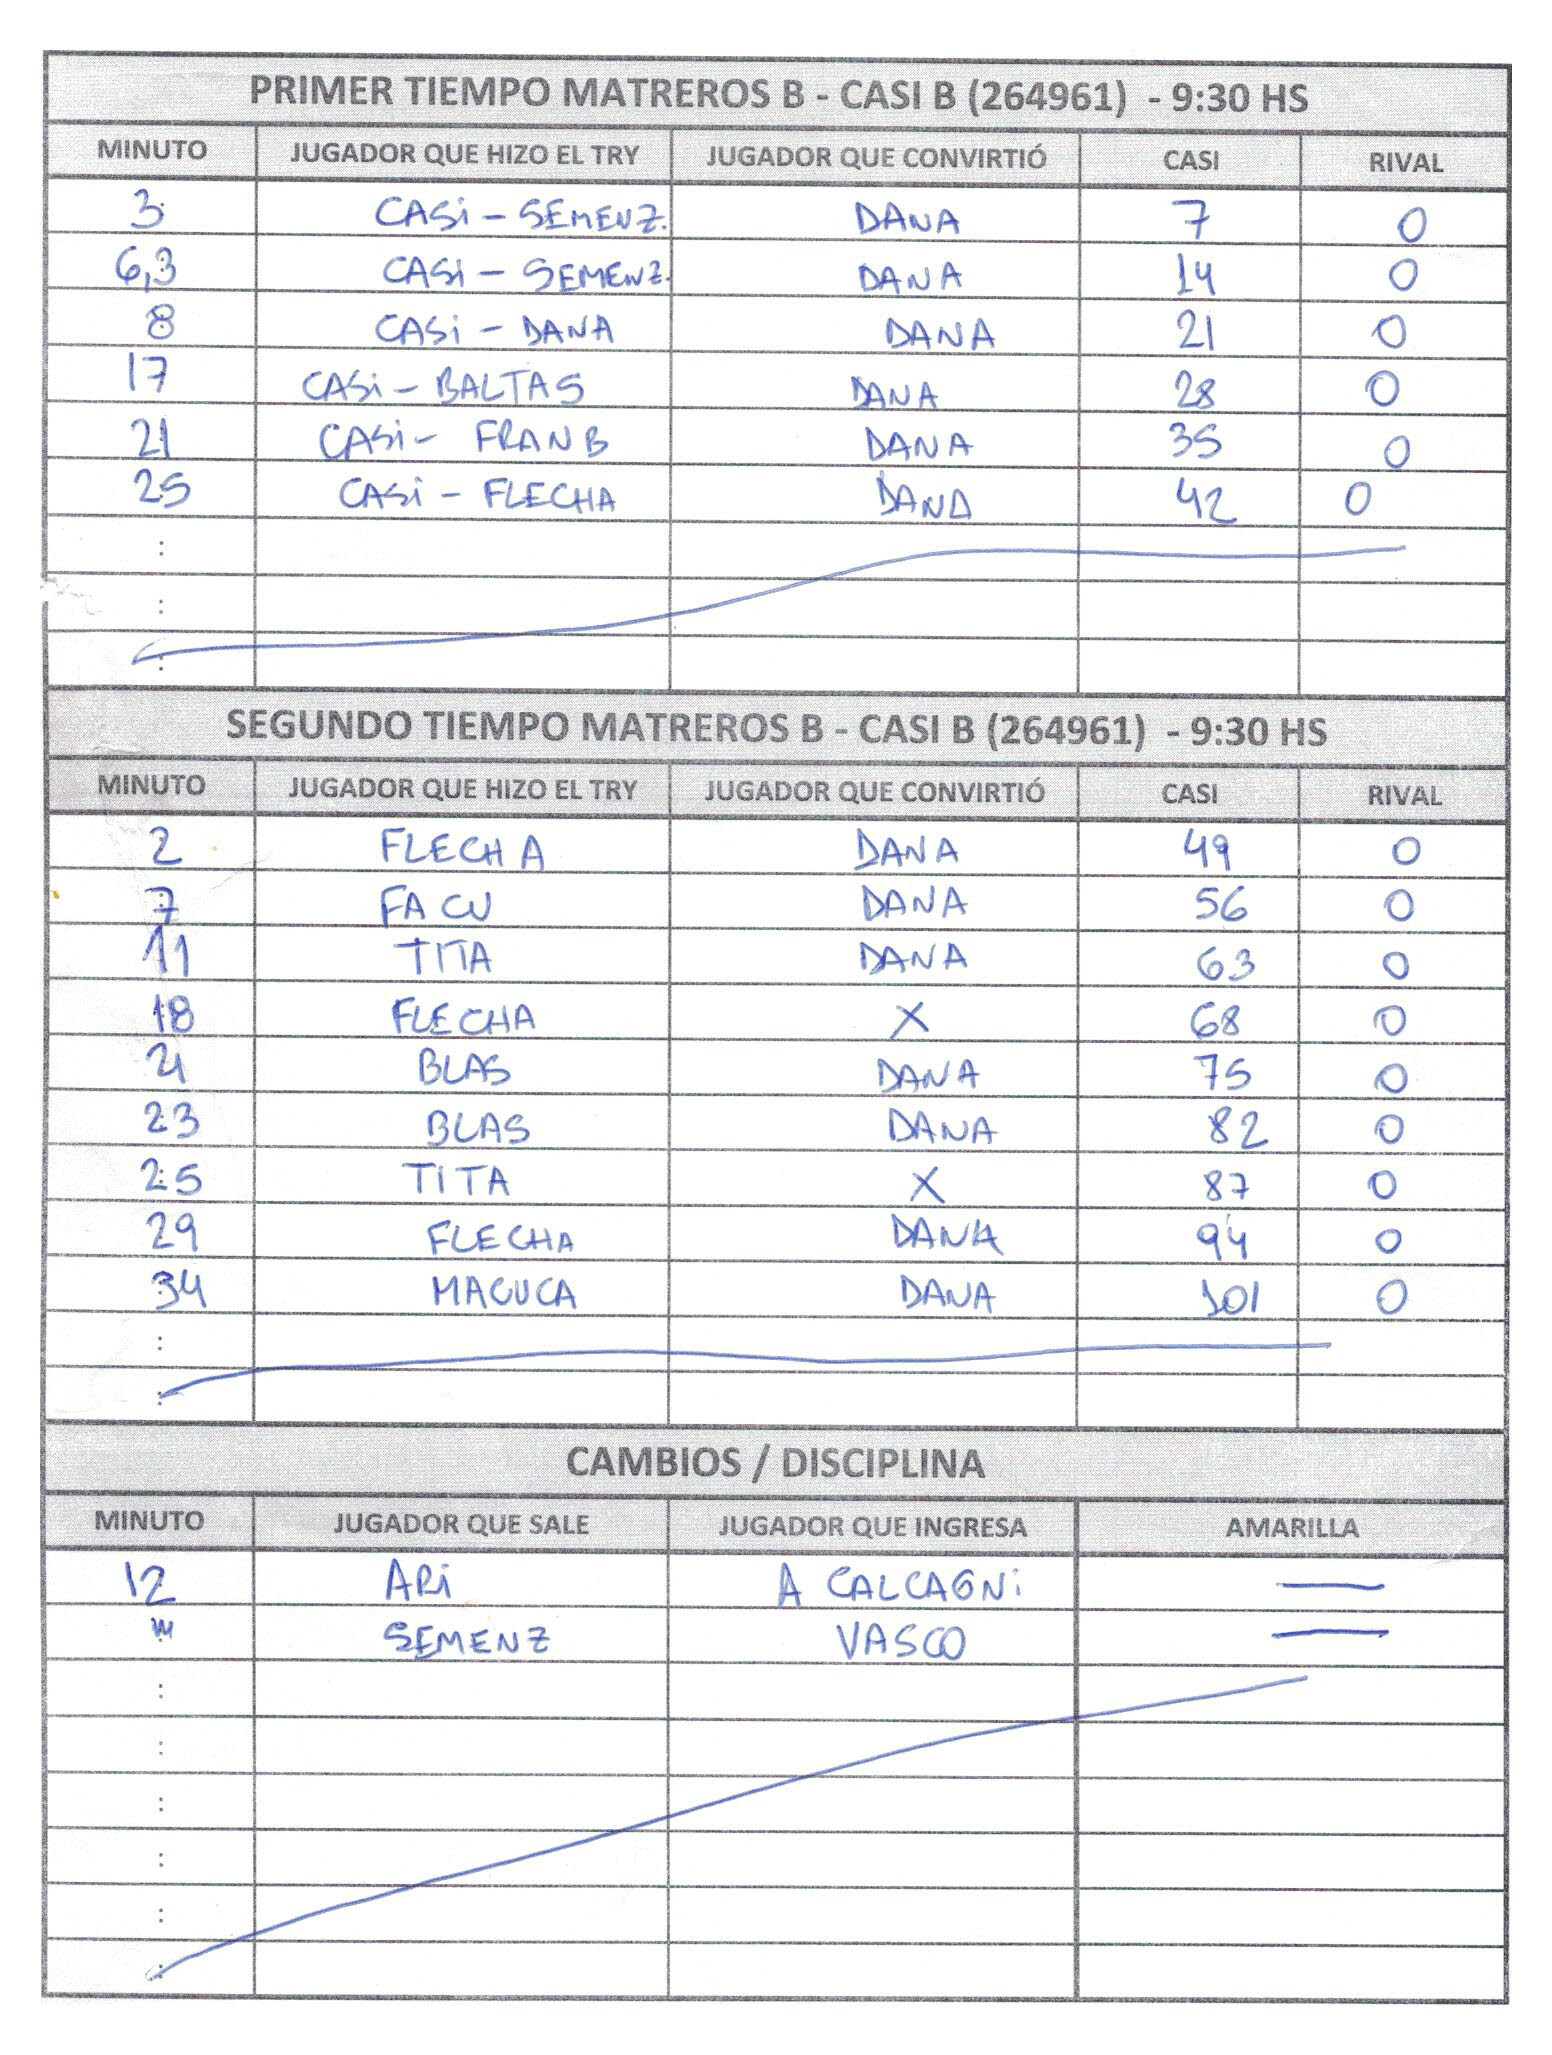 PRIMER TIEMPO MATREROS B - CASI B (264961) - 9:30 HS
MINUTO JUGADOR QUE HIZO EL TRY JUGADOR QUE CONVIRTIÓ CASI RIVAL
3 CASI - SEMENZ. DANA 7 0
6,3 CASI - SEMENZ. DANA 14 0
8 CASI - DANA DANA 21 0
17 CASI - BALTAS DANA 28 0
21 CASI - FRAN B DANA 35 0
25 CASI - FLECHA DANA 42 0
:
:
:
SEGUNDO TIEMPO MATREROS B - CASI B (264961) - 9:30 HS
MINUTO JUGADOR QUE HIZO EL TRY JUGADOR QUE CONVIRTIÓ CASI RIVAL
2 FLECHA DANA 49 0
7 FACU DANA 56 0
11 TITA DANA 63 0
18 FLECHA X 68 0
21 BLAS DANA 75 0
23 BLAS DANA 82 0
25 TITA X 87 0
29 FLECHA DANA 94 0
34 MACUCA DANA 101 0
:
:
CAMBIOS / DISCIPLINA
MINUTO JUGADOR QUE SALE JUGADOR QUE INGRESA AMARILLA
12 ARI A CALCAGNI —
SEMENZ VASCO —
:
:
:
:
:
: